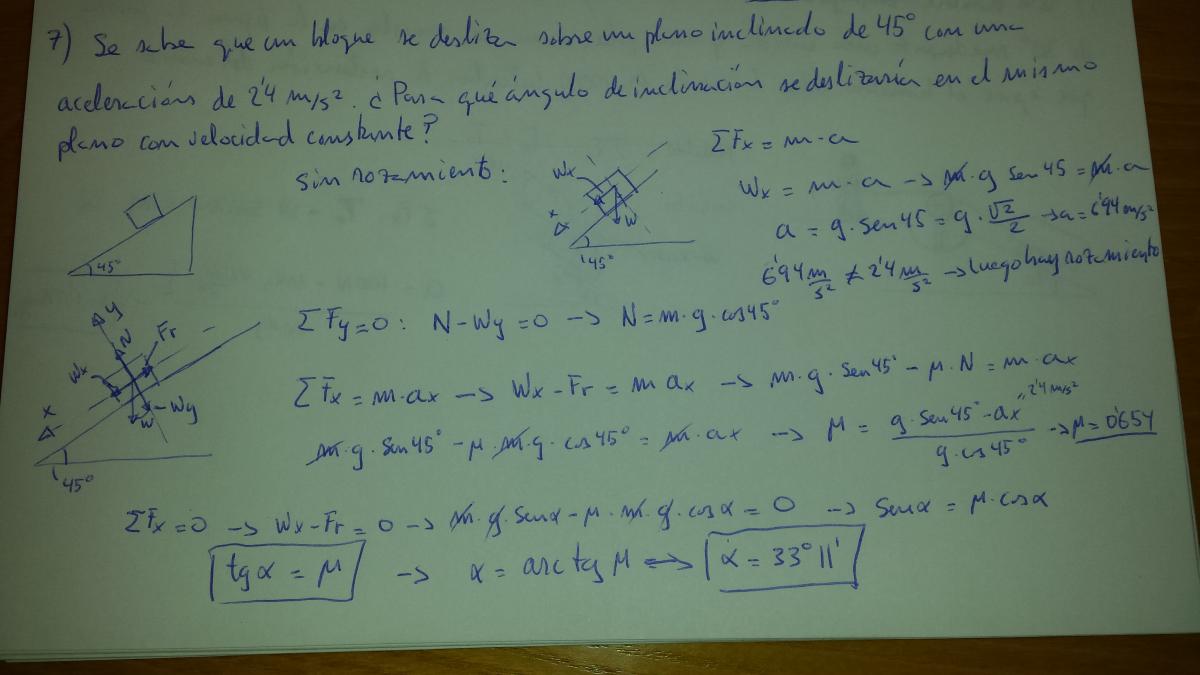 7) Se sabe que un bloque se desliza sobre un plano inclinado de 45° con una
aceleración de 2'4 m/s². ¿Para qué ángulo de inclinación se deslizaría en el mismo
plano con velocidad constante?
sin rozamiento:
ΣFx = m·a
Wx = m·a → m·g sen45 = m·a
a = g·sen45 = g·√2/2 → a = 6'94 m/s²
6'94 m/s² ≠ 2'4 m/s² → luego hay rozamiento
45°
Wx
W
x
45°
ΣFy=0: N-Wy=0 → N=m·g·cos45°
ΣFx=m·ax → Wx-Fr = m ax → m·g·sen45° - μ·N = m·ax
m·g·sen45° - μ·m·g·cos45° = m·ax → μ = (g·sen45°-ax)/(g·cos45°) → μ=0'654
2'4 m/s²
y
N
Fr
Wx
Wy
W
x
45°
ΣFx=0 → Wx-Fr=0 → m·g·senα-μ·m·g·cosα=0 → senα=μ·cosα
tgα = μ → α = arctg μ ⟺ α = 33°11'